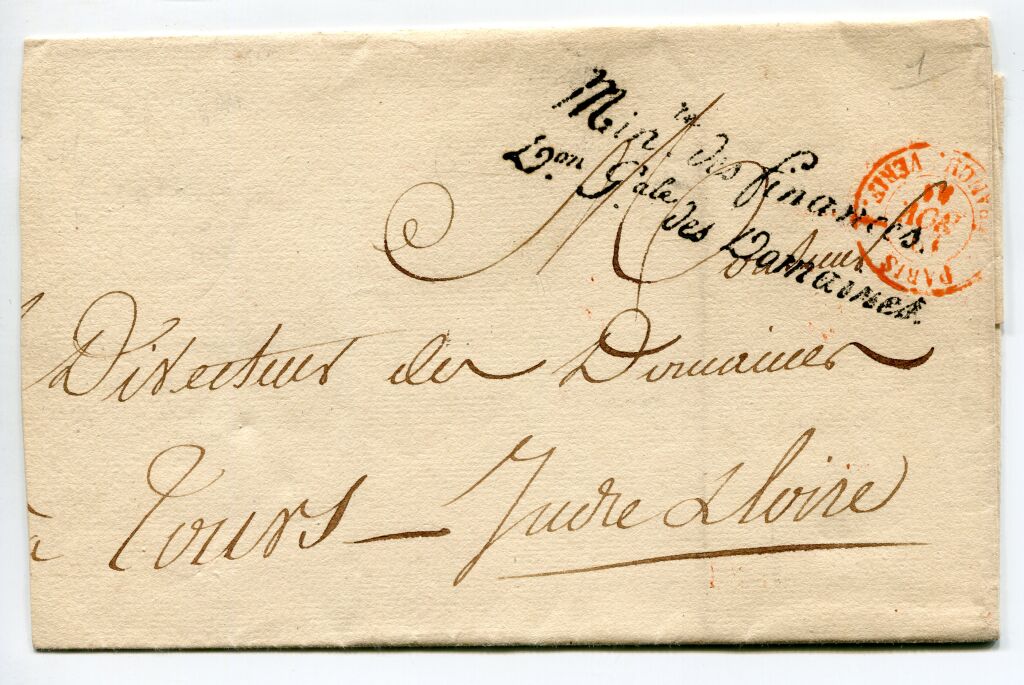 1
Minre. des finances.
Don. Gale. des Domaines.
Directeur des Domaines
à Tours – Indre & Loire
PARIS